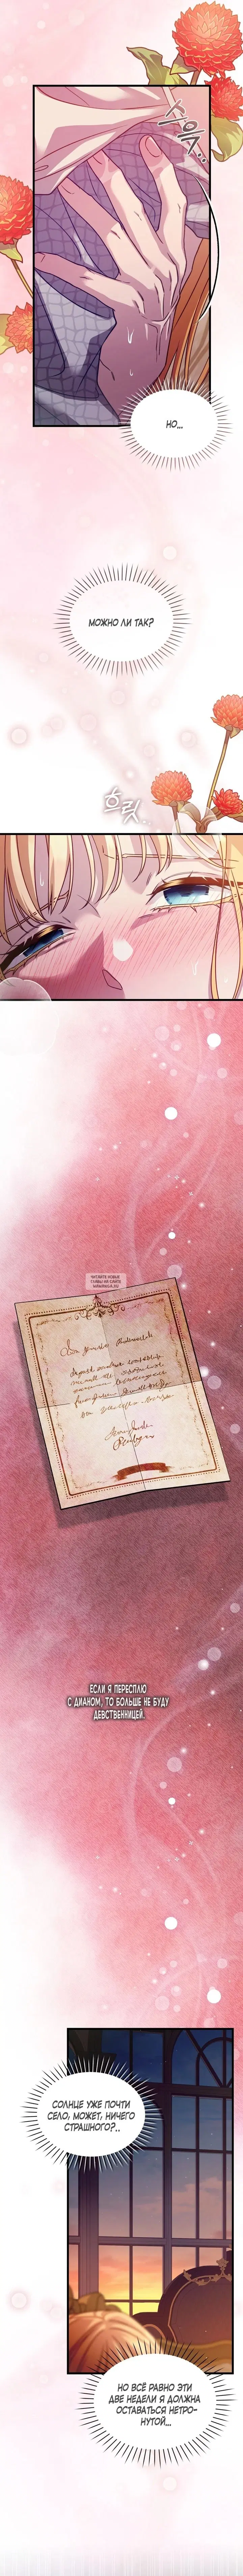 스윽..
НО...
МОЖНО ЛИ ТАК?
흐릿..
ЧИТАЙТЕ НОВЫЕ
ГЛАВЫ НА САЙТЕ
ЕСЛИ Я ПЕРЕСПЛЮ
С ДИАНОМ, ТО БОЛЬШЕ НЕ БУДУ
ДЕВСТВЕННИЦЕЙ.
СОЛНЦЕ УЖЕ ПОЧТИ
СЕЛО, МОЖЕТ, НИЧЕГО
СТРАШНОГО?..
НО ВСЁ РАВНО ЭТИ
ДВЕ НЕДЕЛИ Я ДОЛЖНА
ОСТАВАТЬСЯ НЕТРО-
НУТОЙ...